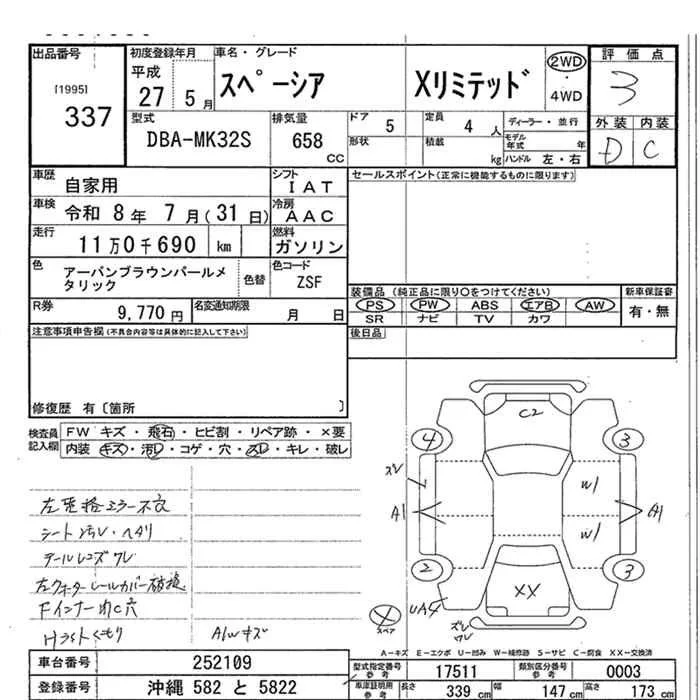 出品番号 初度登録年月 車名・グレード 評価点
[1995] 平成 スペーシア Xリミテッド 2WD 3
337 27 5月 4WD
型式 排気量 ドア 5 定員 4人 ディーラー・並行 外装 内装
DBA-MK32S 658 CC 形状 積載 kg モデル年式 年 ハンドル 左・右 D C
車歴 自家用 シフト IAT セールスポイント(正常に機能するものに限ります)
車検 令和 8年 7月(31日) 冷房 AAC
走行 11万0千690 km 燃料 ガソリン
色 アーバンブラウンパールメタリック 色替 色コード ZSF
装備品 (純正品に限り〇をつけてください) 新車保証書
R券 9,770円 名変通知期限 月 日 PS PW ABS エアB AW 有・無
SR ナビ TV カワ
注意事項申告欄(不具合内容等は具体的に記入して下さい) 後日品
修復歴 有〔箇所 〕
検査員記入欄 FW キズ・飛石・ヒビ割・リペア跡・×要
内装 キズ・汚レ・コゲ・穴・スレ・キレ・破レ
シート汚レ・ヘタリ
テールレンズワレ
左クォーターレールカバー破損
Hライトくもり A/Wキズ
C2
4 3
スレ
W1
A1 A1
W1
2 3
XX
UA4
スペア
ズレ
ワレ
A-キズ E-エクボ U-凹み W-補修跡 S-サビ C-腐食 XX-交換済
車台番号 252109 型式指定番号 参考 17511 類別区分番号 参考 0003
登録番号 沖縄 582 と 5822 車庫証明用 参考 長さ 339 cm 幅 147 cm 高さ 173 cm